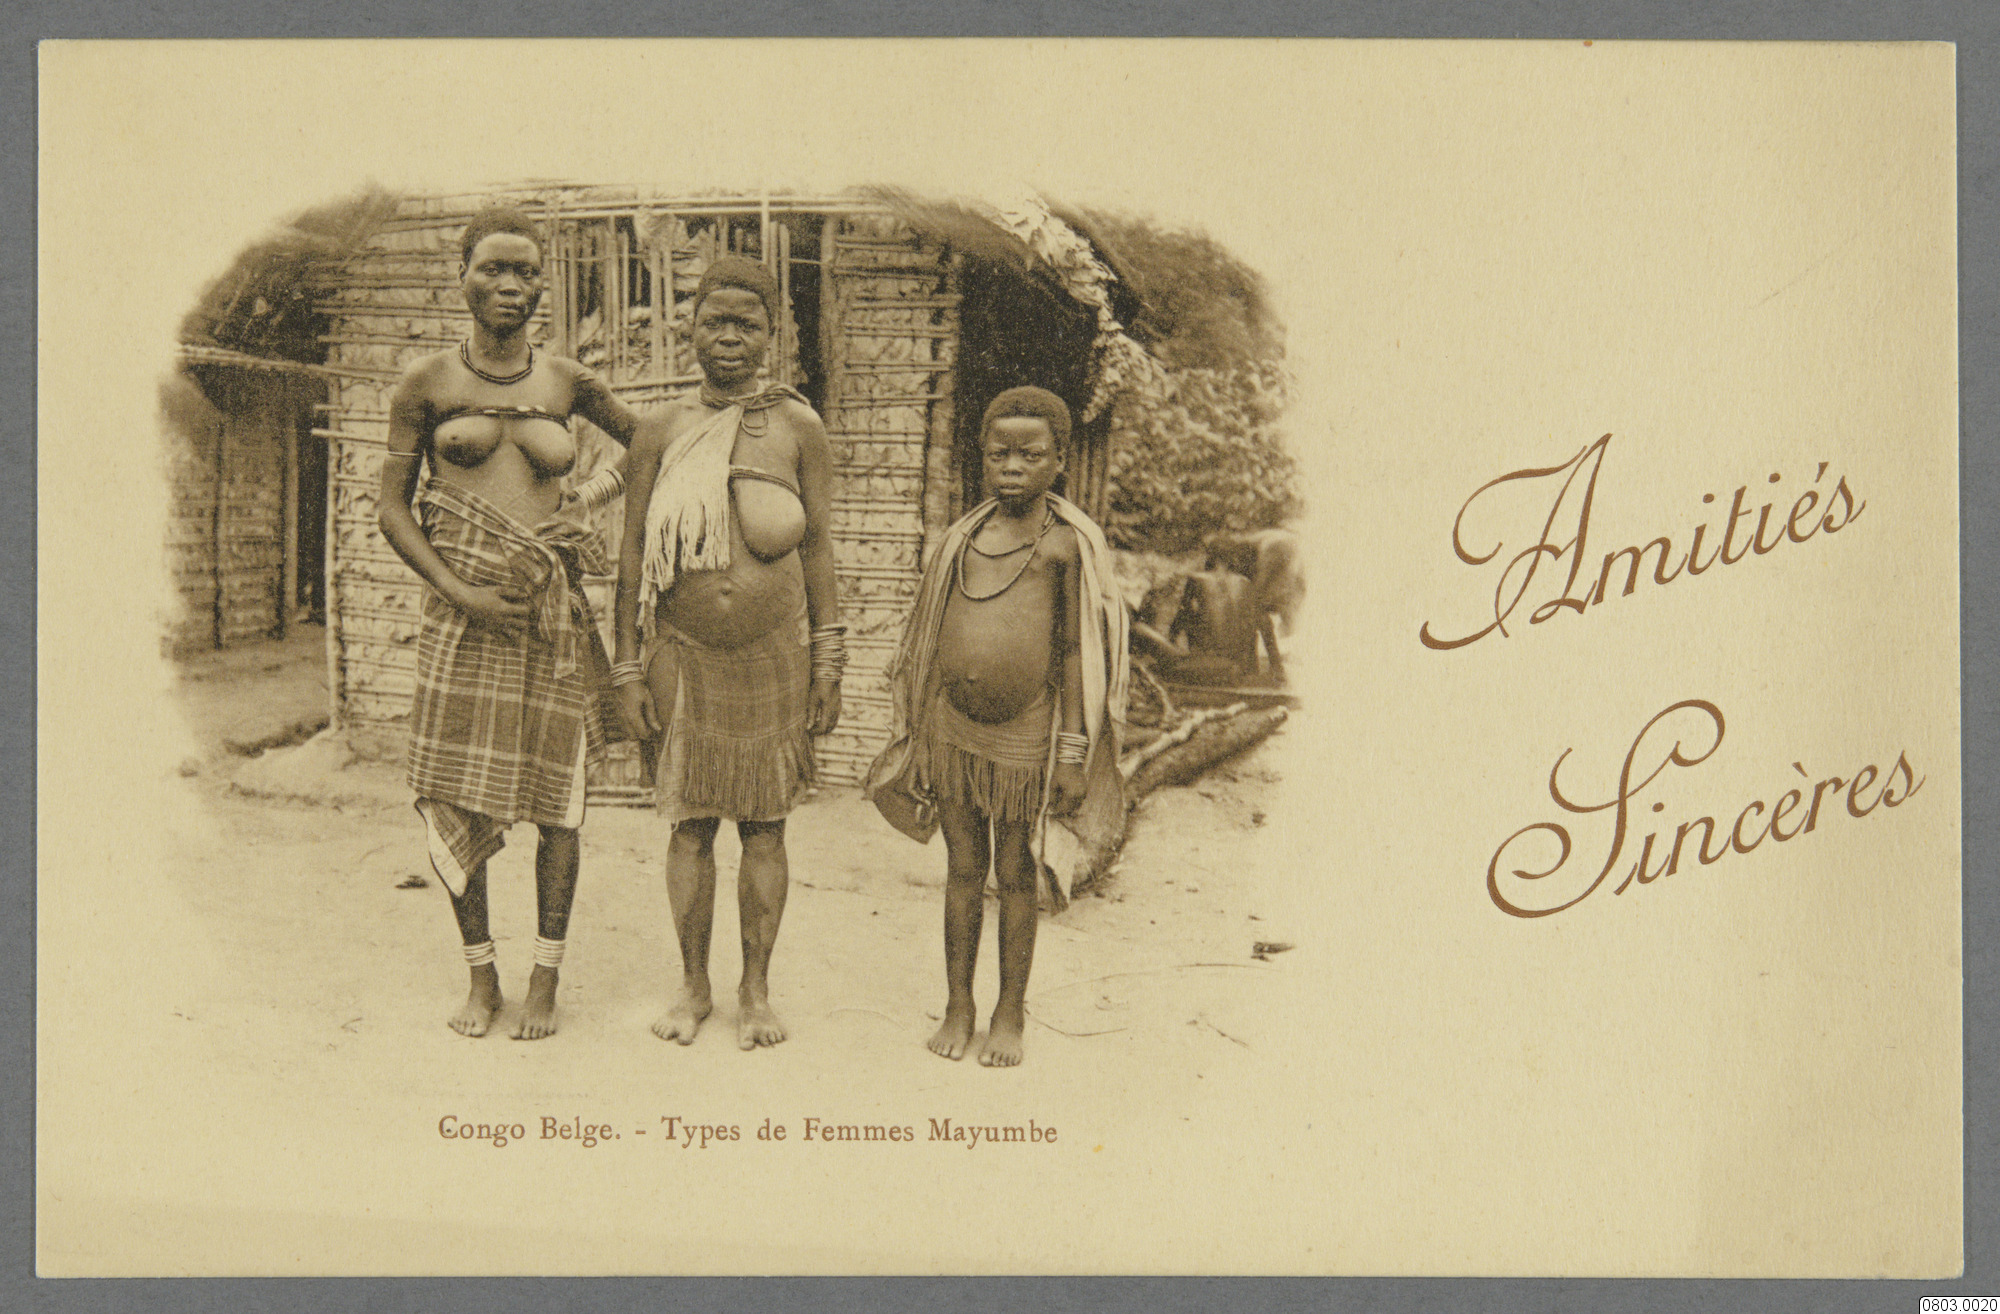 Amitiés
Sincères
Congo Belge. - Types de Femmes Mayumbe
0803.0020